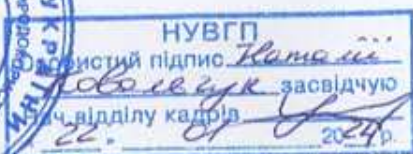 НУВГП
Особистий підпис Наталії
Ковальчук засвідчую
Нач. відділу кадрів
"22" 01 2024р.